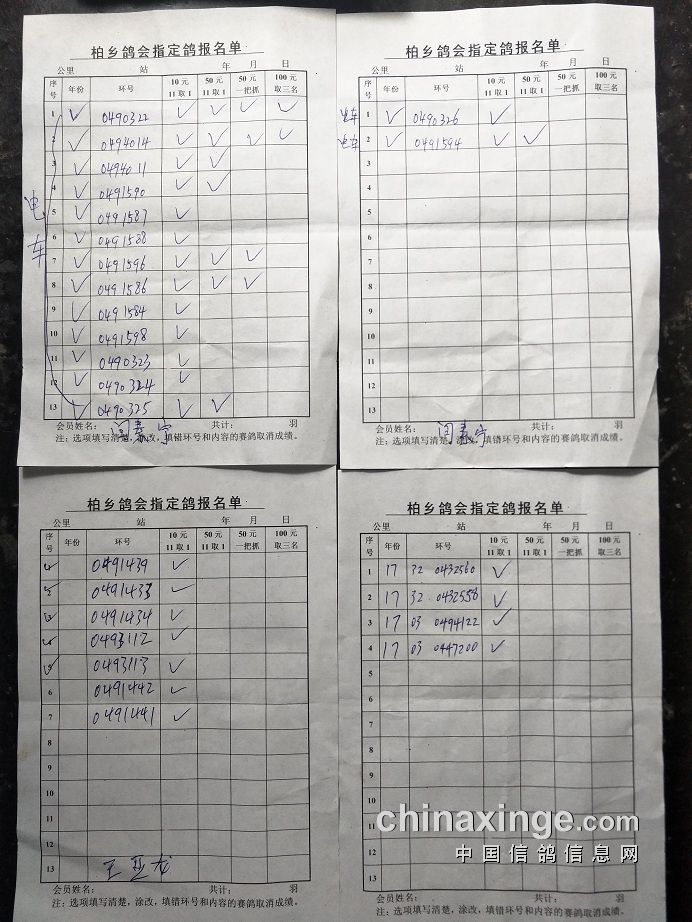 柏乡鸽会指定鸽报名单
公里 站 年 月 日
序号 年份 环号 10元11取1 50元11取1 50元一把抓 100元取三名
电车
1 ✓ 0490322 ✓ ✓ ✓ ✓
2 ✓ 0494014 ✓ ✓ ✓ ✓
3 ✓ 0494011 ✓ ✓
4 ✓ 0491590 ✓ ✓
5 ✓ 0491587 ✓
6 ✓ 0491588 ✓
7 ✓ 0491596 ✓ ✓ ✓
8 ✓ 0491586 ✓ ✓ ✓
9 ✓ 0491584 ✓
10 ✓ 0491598 ✓
11 ✓ 0490323 ✓
12 ✓ 0490324 ✓
13 ✓ 0490325 ✓ ✓
会员姓名: 共计: 羽
注:选项填写清楚,涂改,填错环号和内容的赛鸽取消成绩。
柏乡鸽会指定鸽报名单
公里 站 年 月 日
序号 年份 环号 10元11取1 50元11取1 50元一把抓 100元取三名
电车 1 ✓ 0490326 ✓
电车 2 ✓ 0491594 ✓ ✓
3
4
5
6
7
8
9
10
11
12
13
会员姓名: 共计: 羽
注:选项填写清楚,涂改,填错环号和内容的赛鸽取消成绩。
柏乡鸽会指定鸽报名单
公里 站 年 月 日
序号 年份 环号 10元11取1 50元11取1 50元一把抓 100元取三名
1 ✓ 0491439 ✓
2 ✓ 0491433 ✓
3 ✓ 0491434 ✓
4 ✓ 0493112 ✓
5 ✓ 0493113 ✓
6 0491442 ✓
7 0491441 ✓
8
9
10
11
12
13 王亚龙
会员姓名: 共计: 羽
注:选项填写清楚,涂改,填错环号和内容的赛鸽取消成绩。
柏乡鸽会指定鸽报名单
公里 站 年 月 日
序号 年份 环号 10元11取1 50元11取1 50元一把抓 100元取三名
1 17 32 0432560 ✓
2 17 32 0432558 ✓
3 17 03 0494122 ✓
4 17 03 0447200 ✓
5
6
7
8
9
10
11
12
13
会员姓名: 共计: 羽
注:选项填写清楚,涂改,填错环号和内容的赛鸽取消成绩。
chinaxinge.com
中国信鸽信息网